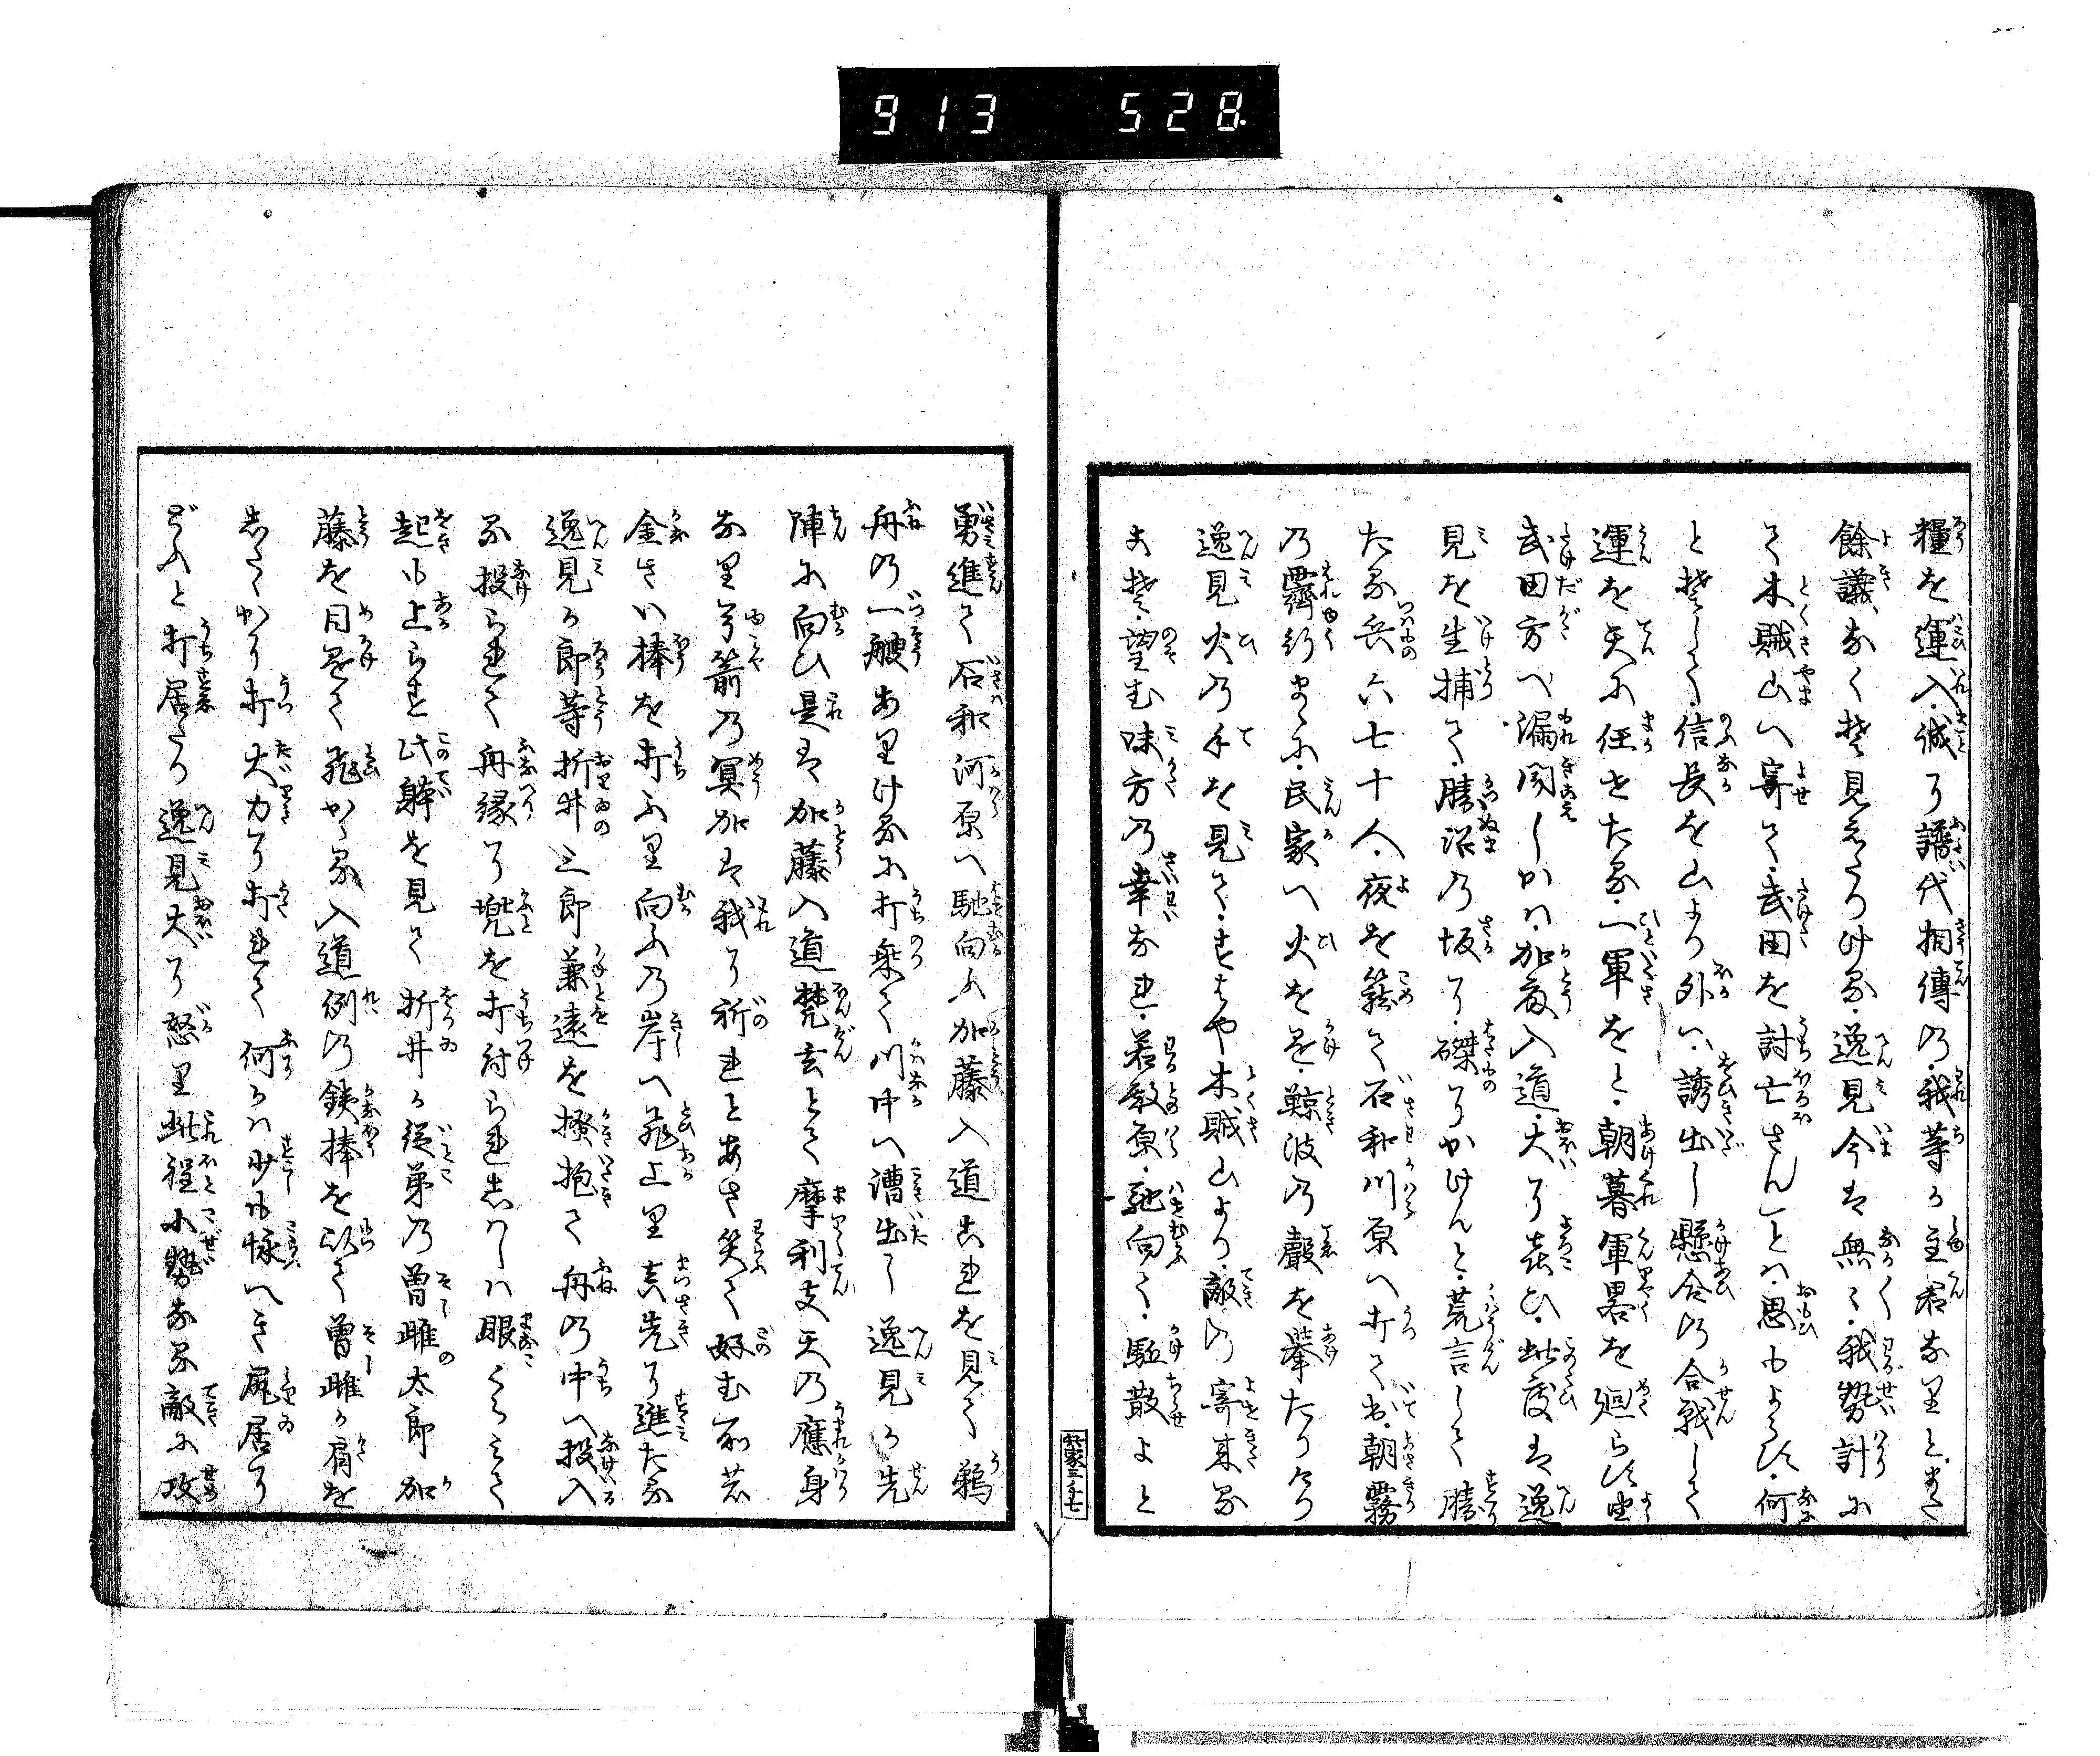 913 528
糧を運入。誠に譜代相傳の。我等が主君なりと。また
餘議なくぞ見えたりける。逸見今は無く。我勢計に
て木賊山へ寄て。武田を討亡さんとは。思ひもよらず。何
とぞして。信長を山より外へ。誘出し懸合の合戦して
運を天に任せたる。一軍をと。朝暮軍畧を廻らす由
武田方へ漏聞しかば。加藤入道。大に喜ひ。此度は逸
見を生捕て。勝沼の坂に。磔にかけんと。荒言して勝
たる兵六七十人。夜を籠て石和川原へ打て出。朝霧
の霽行まゝに。民家へ火をかけ。鯨波の聲を挙たりけり
逸見火の手を見て。すはや木賊山より。敵の寄来る
よぞ。望む味方の幸なれ。若殿原。馳向て。駈散せよと
勇進て石和河原へ馳向ふ加藤入道これを見て鵜
舟の一艘ありけるに打乗て川中へ漕出し逸見が先
陣に向ひ是は加藤入道梵玄とて摩利支天の應身
なり弓箭の冥加は我に祈れとあざ笑て好む所の
金さい棒を打ふり向ふの岸へ飛上り真先に進たる
逸見が郎等折井三郎兼遠を掻抱て舟の中へ投入
る投られて舟縁に兜を打付られしかば眼くらみて
起も上らず此躰を見て折井が従弟の曽雌太郎加
藤を目かけて飛かゝる入道例の鉄棒を以て曽雌が肩を
したゝかに打大力に打れて何かは少も怺へき尻居に
どふと打居たり逸見大に怒り此程小勢なる敵に攻